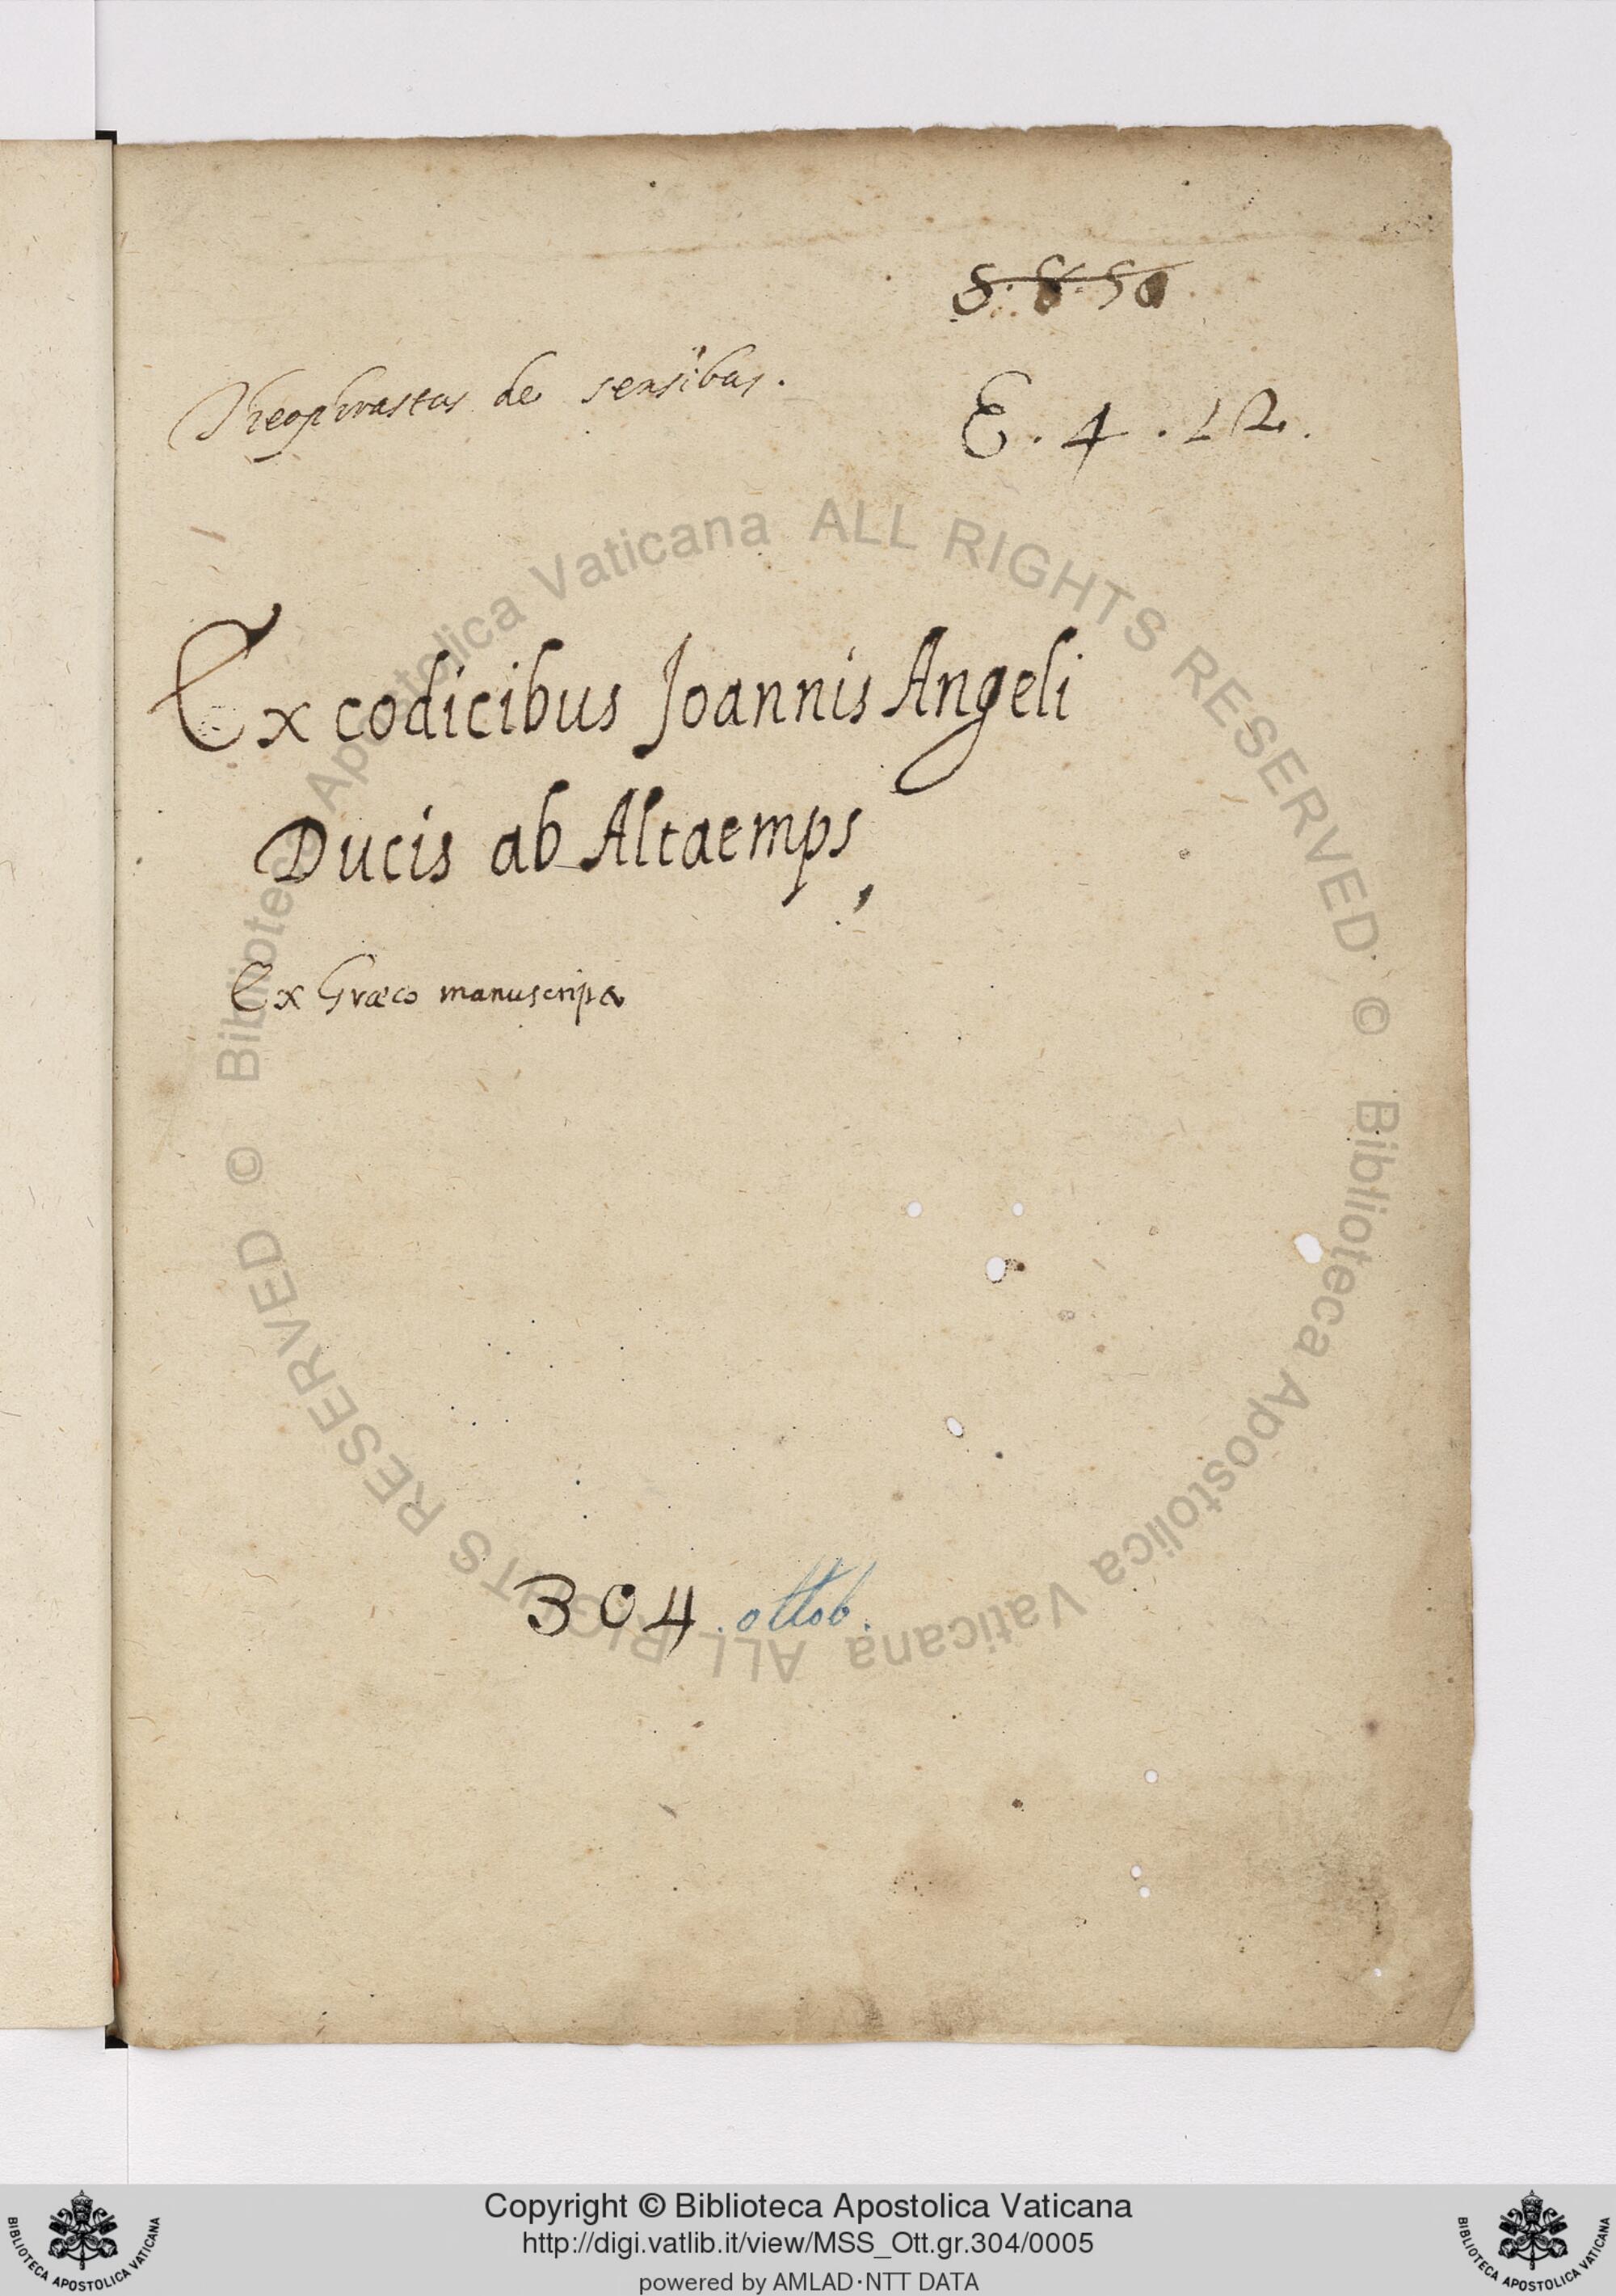 S. 8. 50
Theophrastus de sensibus.
E. 4. 12.
Ex codicibus Joannis Angeli
Ducis ab Altaemps,
Ex Græco manuscripto
304. ottob.
© Biblioteca Apostolica Vaticana ALL RIGHTS RESERVED
© Biblioteca Apostolica Vaticana ALL RIGHTS RESERVED
Copyright © Biblioteca Apostolica Vaticana
http://digi.vatlib.it/view/MSS_Ott.gr.304/0005
powered by AMLAD·NTT DATA
BIBLIOTECA APOSTOLICA VATICANA
BIBLIOTECA APOSTOLICA VATICANA